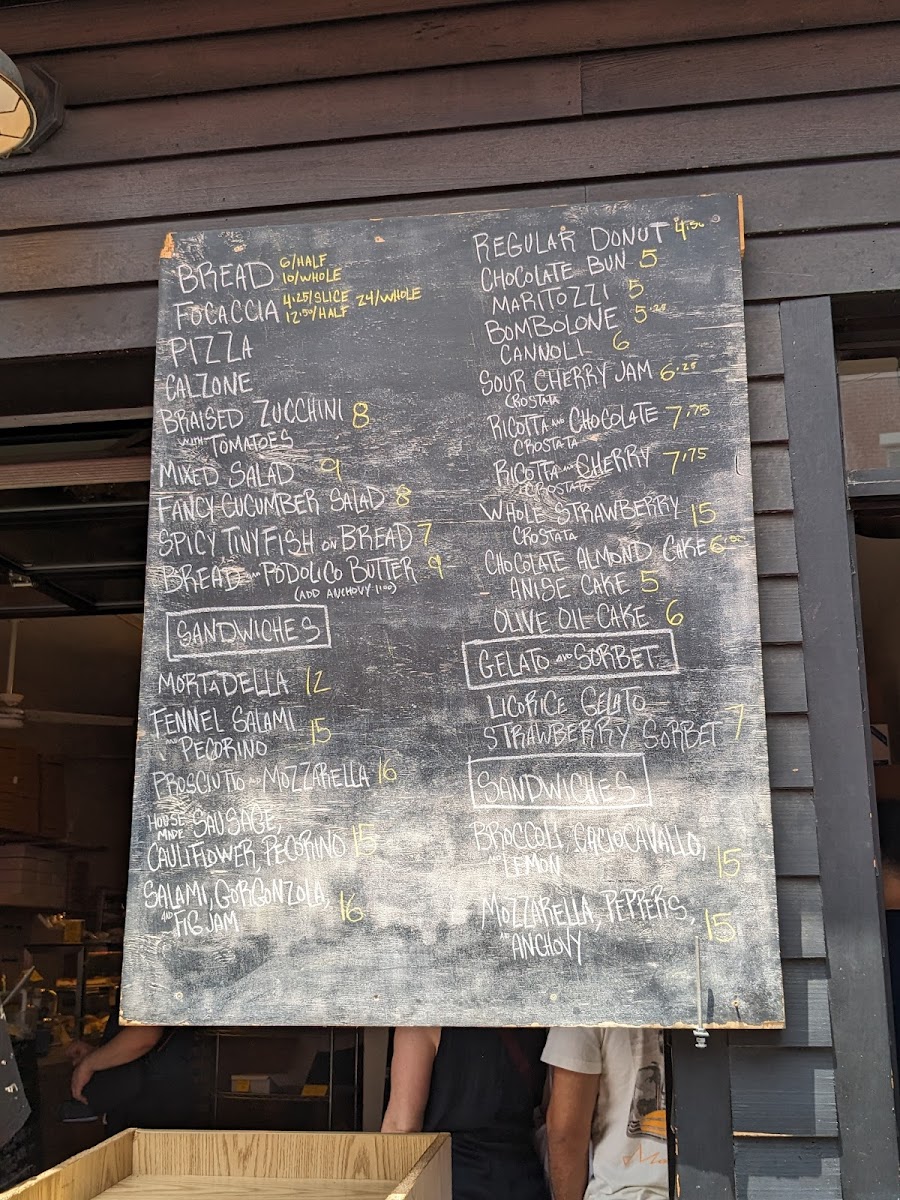 BREAD 6/HALF
10/WHOLE
FOCACCIA 4.25/SLICE 24/WHOLE
12.50/HALF
PIZZA
CALZONE
BRAISED ZUCCHINI 8
WITH TOMATOES
MIXED SALAD 9
FANCY CUCUMBER SALAD 8
SPICY TINY FISH ON BREAD 7
BREAD AND PODOLICO BUTTER 9
(ADD ANCHOVY 1.00)
SANDWICHES
MORTADELLA 12
FENNEL SALAMI
AND PECORINO 15
PROSCIUTTO AND MOZZARELLA 16
HOUSE MADE SAUSAGE,
CAULIFLOWER, PECORINO 15
SALAMI, GORGONZOLA,
AND FIG JAM 16
REGULAR DONUT 4.50
CHOCOLATE BUN 5
MARITOZZI 5
BOMBOLONE 5.20
CANNOLI 6
SOUR CHERRY JAM 6.25
CROSTATA
RICOTTA AND CHOCOLATE 7.75
CROSTATA
RICOTTA AND SHERRY 7.75
CROSTATA
WHOLE STRAWBERRY 15
CROSTATA
CHOCOLATE ALMOND CAKE 6.00
ANISE CAKE 5
OLIVE OIL CAKE 6
GELATO AND SORBET
LICORICE GELATO
STRAWBERRY SORBET 7
SANDWICHES
BROCCOLI, CACIOCAVALLO,
AND LEMON 15
MOZZARELLA, PEPPERS,
AND ANCHOVY 15